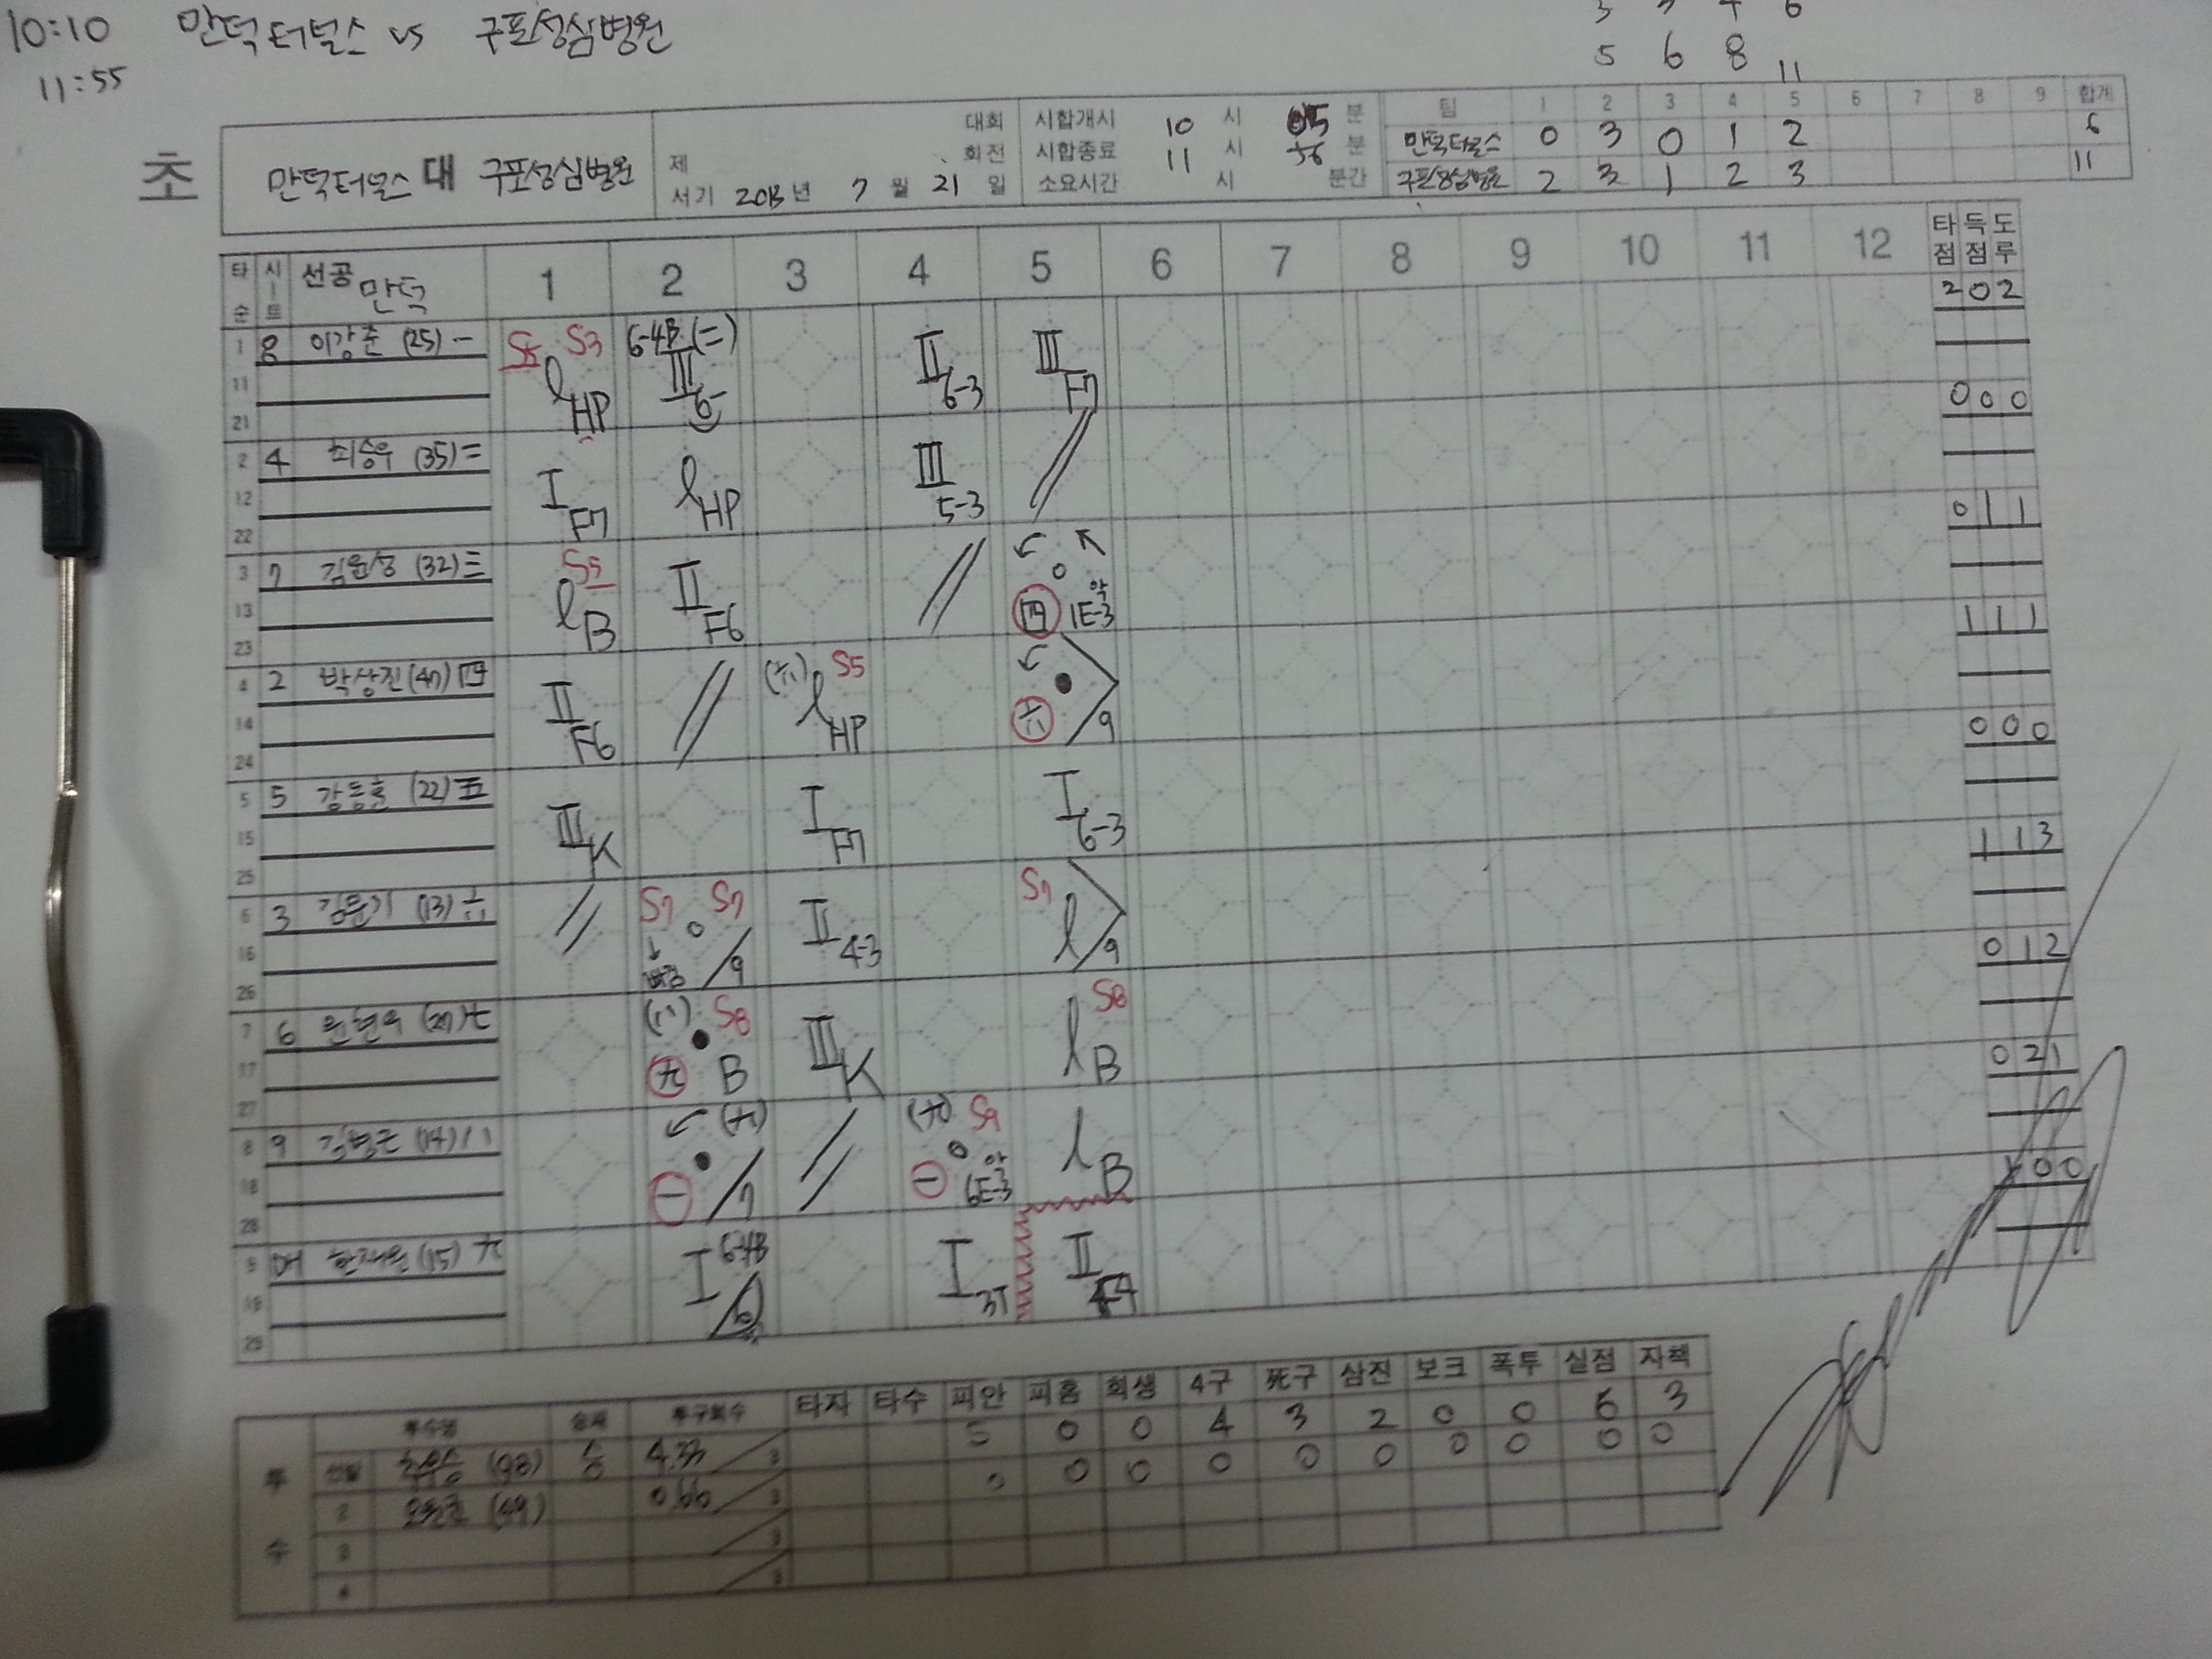 10:10 만덕터널스 vs 구포성심병원
11:55
5 6 8 11
초
만덕터널스 대 구포성심병원
제 대회 회전
서기 2013년 7월 21일
시합개시 10시 05분
시합종료 11시 56분
소요시간 시 분간
팀 1 2 3 4 5 6 7 8 9 합계
만덕터널스 0 3 0 1 2 6
구포성심병원 2 3 1 2 3 11
타순 시트 선공 만덕 1 2 3 4 5 6 7 8 9 10 11 12 타점 득점 도루
2 0 2
1 8 이강준 (25) 一 S5 S3 l HP 6-4B (二) III 6- II 6-3 III F7
11
21
0 0 0
2 4 최승우 (35) 二 I F7 l HP III 5-3
12
22
0 1 1
3 7 (32) 三 S5 l B II F6 四 악 1E-3
13
23
1 1 1
4 2 박상진 (47) 四 II F6 (六) S5 l HP 六 9
14
24
0 0 0
5 5 강동훈 (22) 五 III K I F7 I 6-3
15
25
1 1 3
6 3 김윤기 (13) 六 S7 S7 9 II 4-3 S7 l 9
16
26
0 1 2
7 6 七 (八) S8 九 B III K S8 l B
17
27
0 2 1
8 9 (14) 八 (九) 一 7 (九) S9 一 악 6E-3 l B
18
28
1 0 0
9 DH (15) 九 I 6-4B 6 I 3T II
19
29
투수 투수명 승패 투구회수 타자 타수 피안 피홈 희생 4구 死구 삼진 보크 폭투 실점 자책
선발 (98) 승 4.33 3 5 0 0 4 3 2 0 0 6 3
2 (49) 0.66 3 0 0 0 0 0 0 0 0 0 0
3 3
4 3